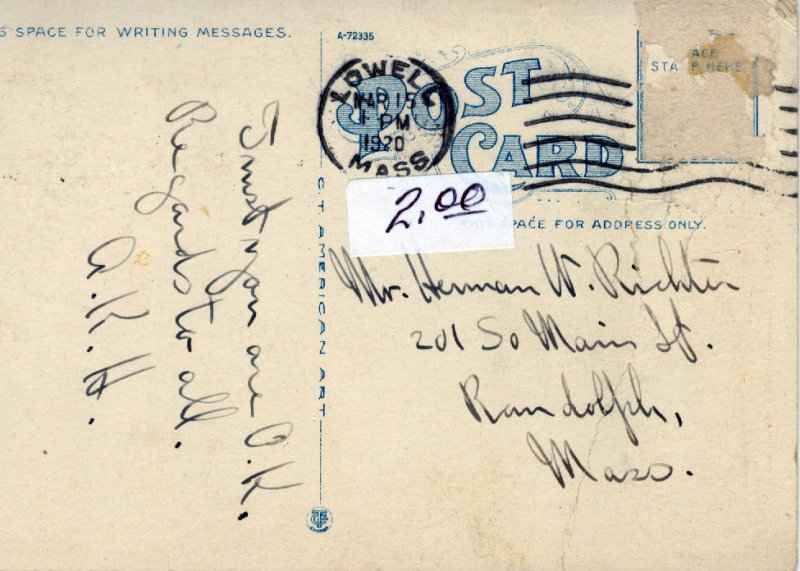 S SPACE FOR WRITING MESSAGES.
Trust you are O.K.
Regards to all.
A. K. H.
C.T. AMERICAN ART
A-72335
POST CARD
LOWELL
MAR 15
1 PM
1920
MASS
ACE
STA P HERE
2.00
SPACE FOR ADDRESS ONLY.
Mr. Herman W. Richter
201 So Main St.
Randolph,
Mass.